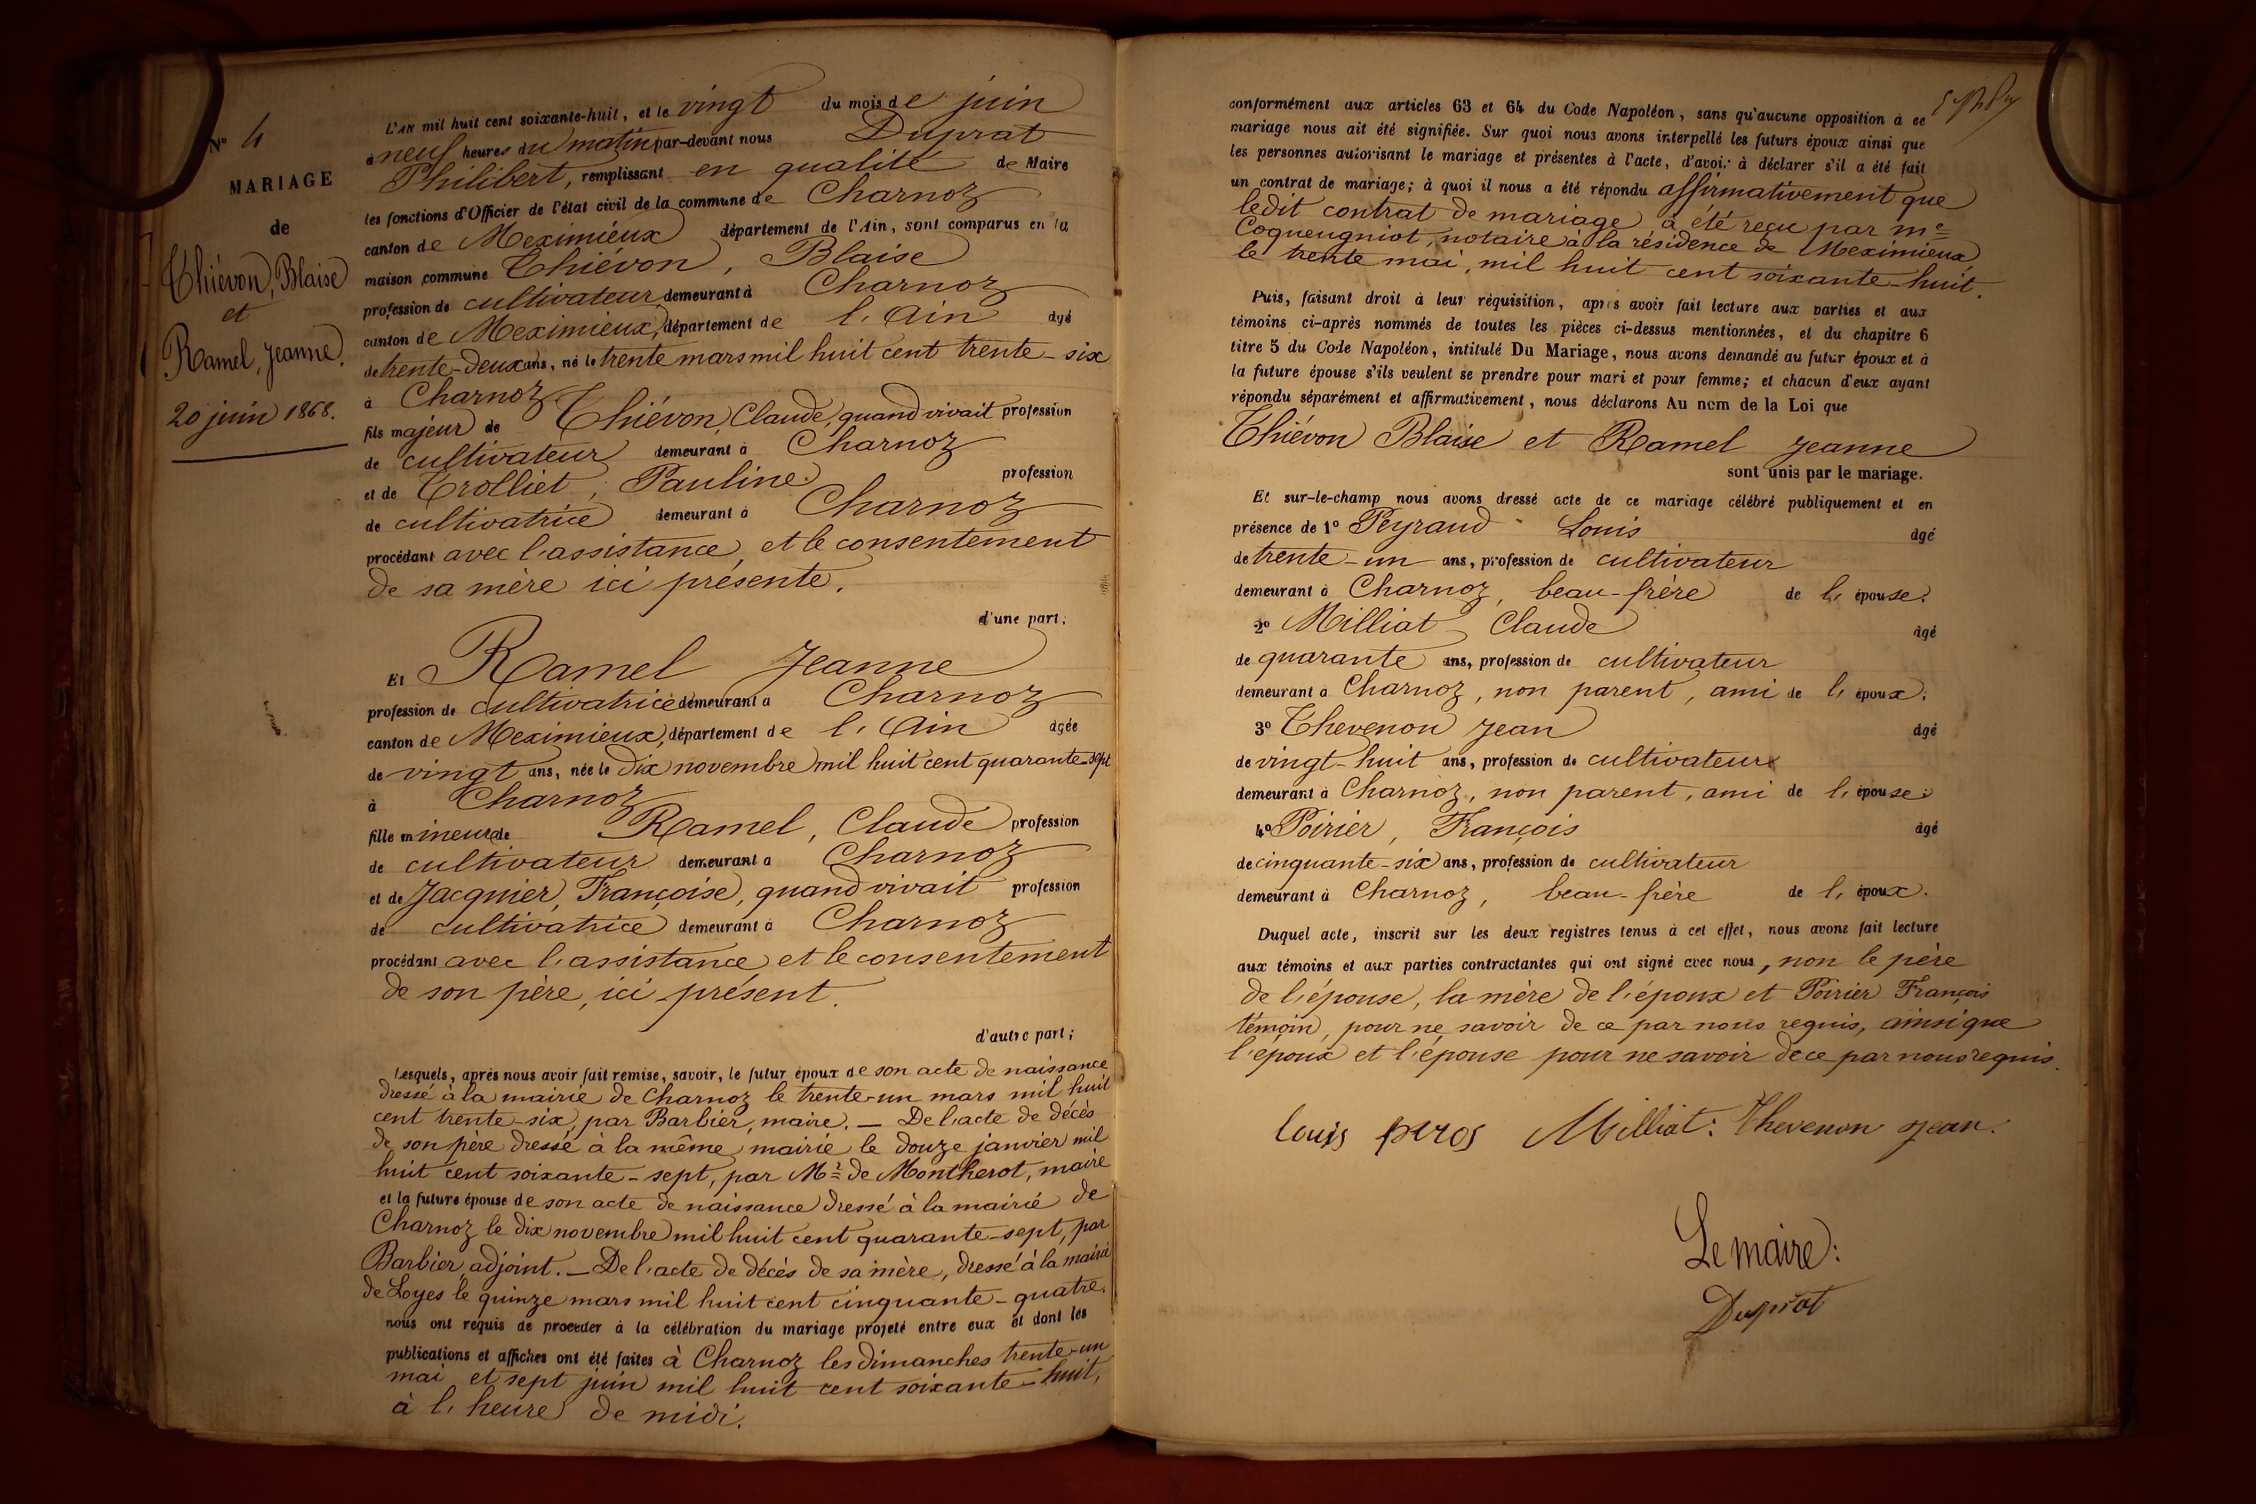 N° 4
MARIAGE
de
Thiévon, Blaise
et
Ramel, Jeanne.
20 juin 1868.
L'AN mil huit cent soixante-huit, et le vingt du mois de juin
à neuf heures du matin par-devant nous Duprat
Philibert, remplissant en qualité de Maire
les fonctions d'Officier de l'état civil de la commune de Charnoz
canton de Meximieux département de l'Ain, sont comparus en la
maison commune Thiévon, Blaise
profession de cultivateur, demeurant à Charnoz
canton de Meximieux, département de l'Ain âgé
de trente-deux ans, né le trente mars mil huit cent trente-six
à Charnoz
fils majeur de Thiévon, Claude, quand vivait profession
de cultivateur demeurant à Charnoz
et de Trolliet, Pauline profession
de cultivatrice demeurant à Charnoz
procédant avec l'assistance, et le consentement
de sa mère ici présente.
d'une part;
Et Ramel Jeanne
profession de cultivatrice demeurant à Charnoz
canton de Meximieux, département de l'Ain âgée
de vingt ans, née le dix novembre mil huit cent quarante-sept
à Charnoz
fille mineure de Ramel, Claude profession
de cultivateur demeurant à Charnoz
et de Jacquier, Françoise, quand vivait profession
de cultivatrice demeurant à Charnoz
procédant avec l'assistance et le consentement
de son père, ici présent.
d'autre part;
Lesquels, après nous avoir fait remise, savoir, le futur époux de son acte de naissance
dressé à la mairie de Charnoz le trente-un mars mil huit
cent trente-six, par Barbier, maire. — De l'acte de décès
de son père dressé à la même mairie le douze janvier mil
huit cent soixante-sept, par Mr de Montherot, maire
et la future épouse de son acte de naissance dressé à la mairie de
Charnoz le dix novembre mil huit cent quarante-sept, par
Barbier, adjoint. — De l'acte de décès de sa mère, dressé à la mairie
de Loyes le quinze mars mil huit cent cinquante-quatre.
nous ont requis de procéder à la célébration du mariage projeté entre eux et dont les
publications et affiches ont été faites à Charnoz les dimanches trente-un
mai et sept juin mil huit cent soixante-huit,
à l'heure de midi.
conformément aux articles 63 et 64 du Code Napoléon, sans qu'aucune opposition à ce
mariage nous ait été signifiée. Sur quoi nous avons interpellé les futurs époux ainsi que
les personnes autorisant le mariage et présentes à l'acte, d'avoir à déclarer s'il a été fait
un contrat de mariage; à quoi il nous a été répondu affirmativement que
ledit contrat de mariage a été reçu par me
Coqueugniot, notaire à la résidence de Meximieux
le trente mai, mil huit cent soixante-huit.
Puis, faisant droit à leur réquisition, après avoir fait lecture aux parties et aux
témoins ci-après nommés de toutes les pièces ci-dessus mentionnées, et du chapitre 6
titre 5 du Code Napoléon, intitulé Du Mariage, nous avons demandé au futur époux et à
la future épouse s'ils veulent se prendre pour mari et pour femme; et chacun d'eux ayant
répondu séparément et affirmativement, nous déclarons Au nom de la Loi que
Thiévon Blaise et Ramel Jeanne
sont unis par le mariage.
Et sur-le-champ nous avons dressé acte de ce mariage célébré publiquement et en
présence de 1° Peyraud Louis âgé
de trente-un ans, profession de cultivateur
demeurant à Charnoz, beau-frère de l'épouse.
2° Milliat Claude âgé
de quarante ans, profession de cultivateur
demeurant à Charnoz, non parent, ami de l'époux.
3° Thevenon Jean âgé
de vingt-huit ans, profession de cultivateur
demeurant à Charnoz, non parent, ami de l'épouse.
4° Poirier, François âgé
de cinquante-six ans, profession de cultivateur
demeurant à Charnoz, beau-frère de l'époux.
Duquel acte, inscrit sur les deux registres tenus à cet effet, nous avons fait lecture
aux témoins et aux parties contractantes qui ont signé avec nous, non le père
de l'épouse, la mère de l'époux et Poirier François
témoin, pour ne savoir de ce par nous requis, ainsi que
l'époux et l'épouse pour ne savoir de ce par nous requis.
Louis peros Milliat. Thevenon Jean.
Le maire:
Duprat